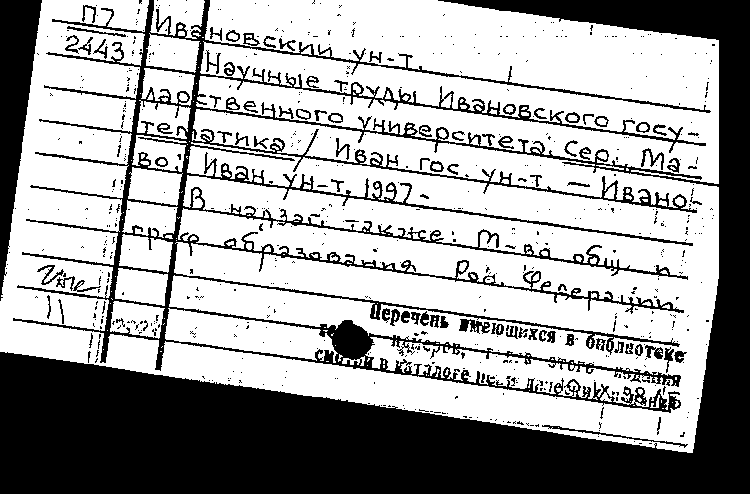 П7
2443
Ивановский ун-т.
Научные труды Ивановского госу-
дарственного университета. Сер., Ма-
тематика / Иван. гос. ун-т. — Ивано-
во: Иван. ун-т, 1997-
В надзаг. также: М-во общ. и
проф образования Рос. Федерации
11
Перечень имеющихся в библиотеке
номеров, этого издания
смотри в каталоге